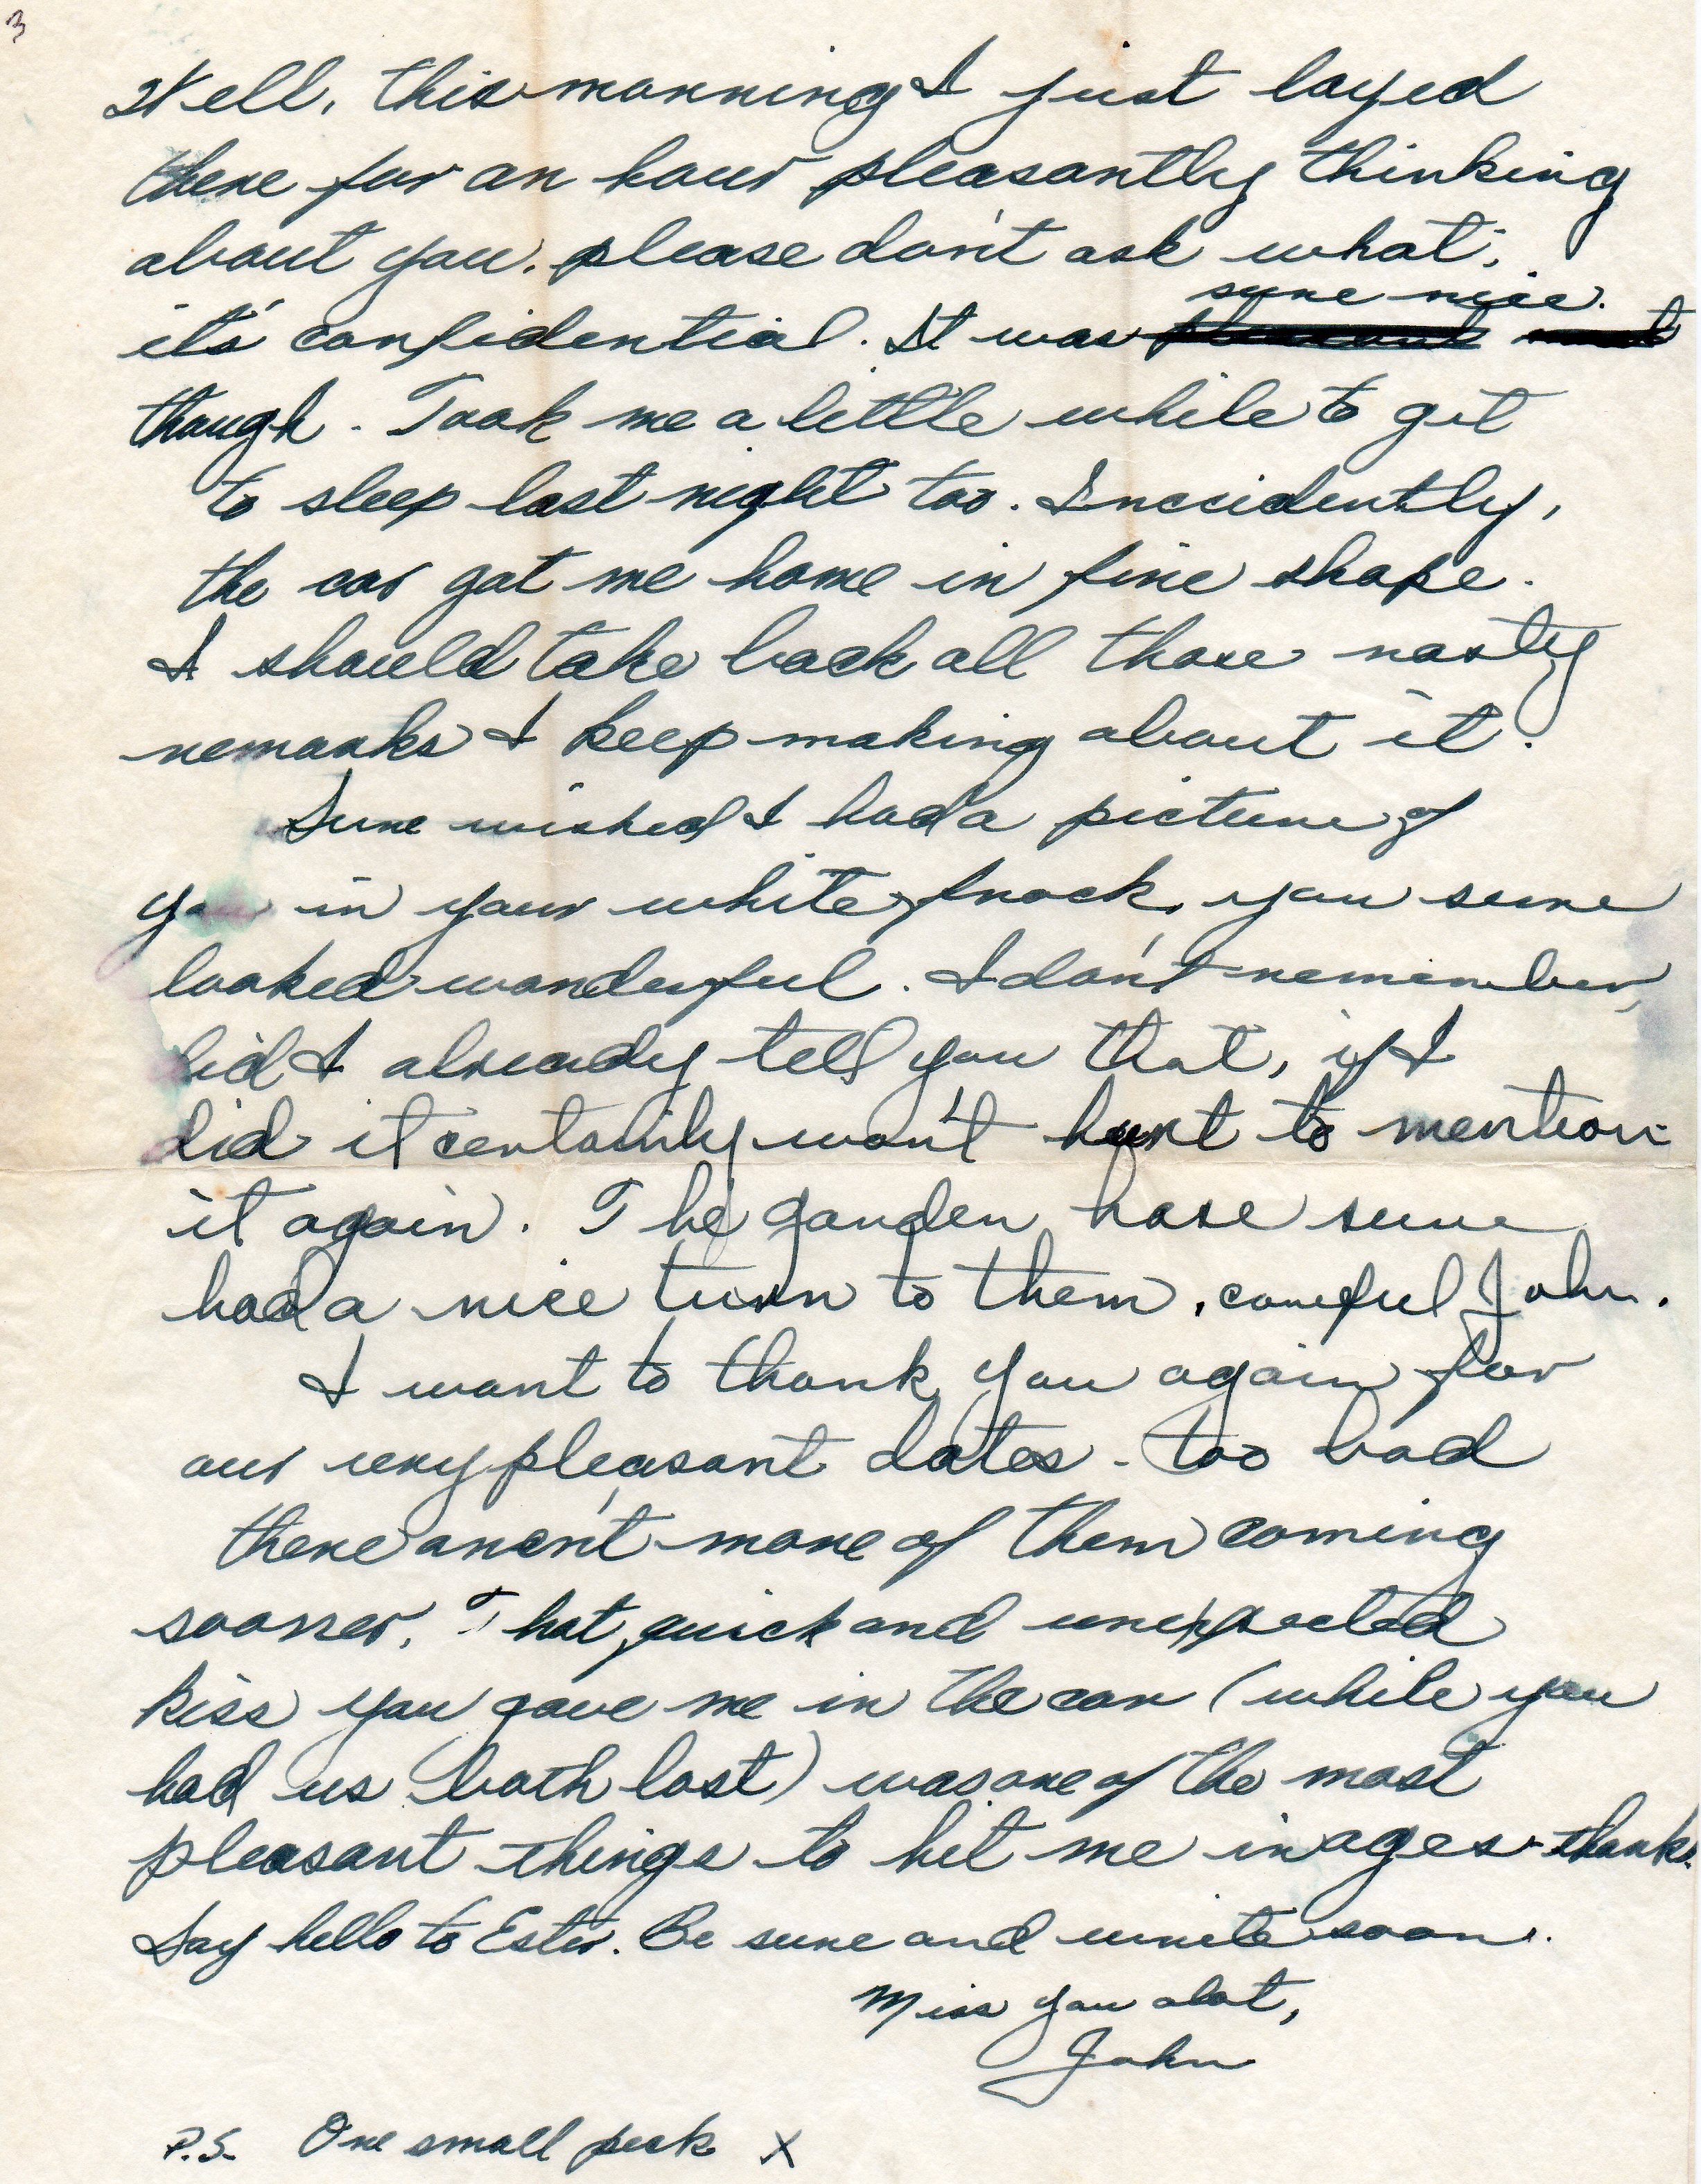 3
Well, this morning I just layed
there for an hour pleasantly thinking
about you. please don't ask what;
sure nice.
it's confidential. It was
though. Took me a little while to get
to sleep last night too. Inccidently,
the car got me home in fine shape.
I should take back all those nasty
remarks I keep making about it.
Sure wished I had a picture of
you in your white frock, you sure
looked wonderful. I don't remember,
did I already tell you that, if I
did it certainly won't hurt to mention
it again. The garden hose sure
had a nice turn to them, careful John.
I want to thank you again for
our very pleasant dates - too bad
there aren't more of them coming
sooner. That, quick and unexpected
kiss you gave me in the car (while you
had us both lost) was one of the most
pleasant things to hit me in ages - thanks.
Say hello to Ester. Be sure and write soon.
Miss you alot,
John
P.S. One small peck X